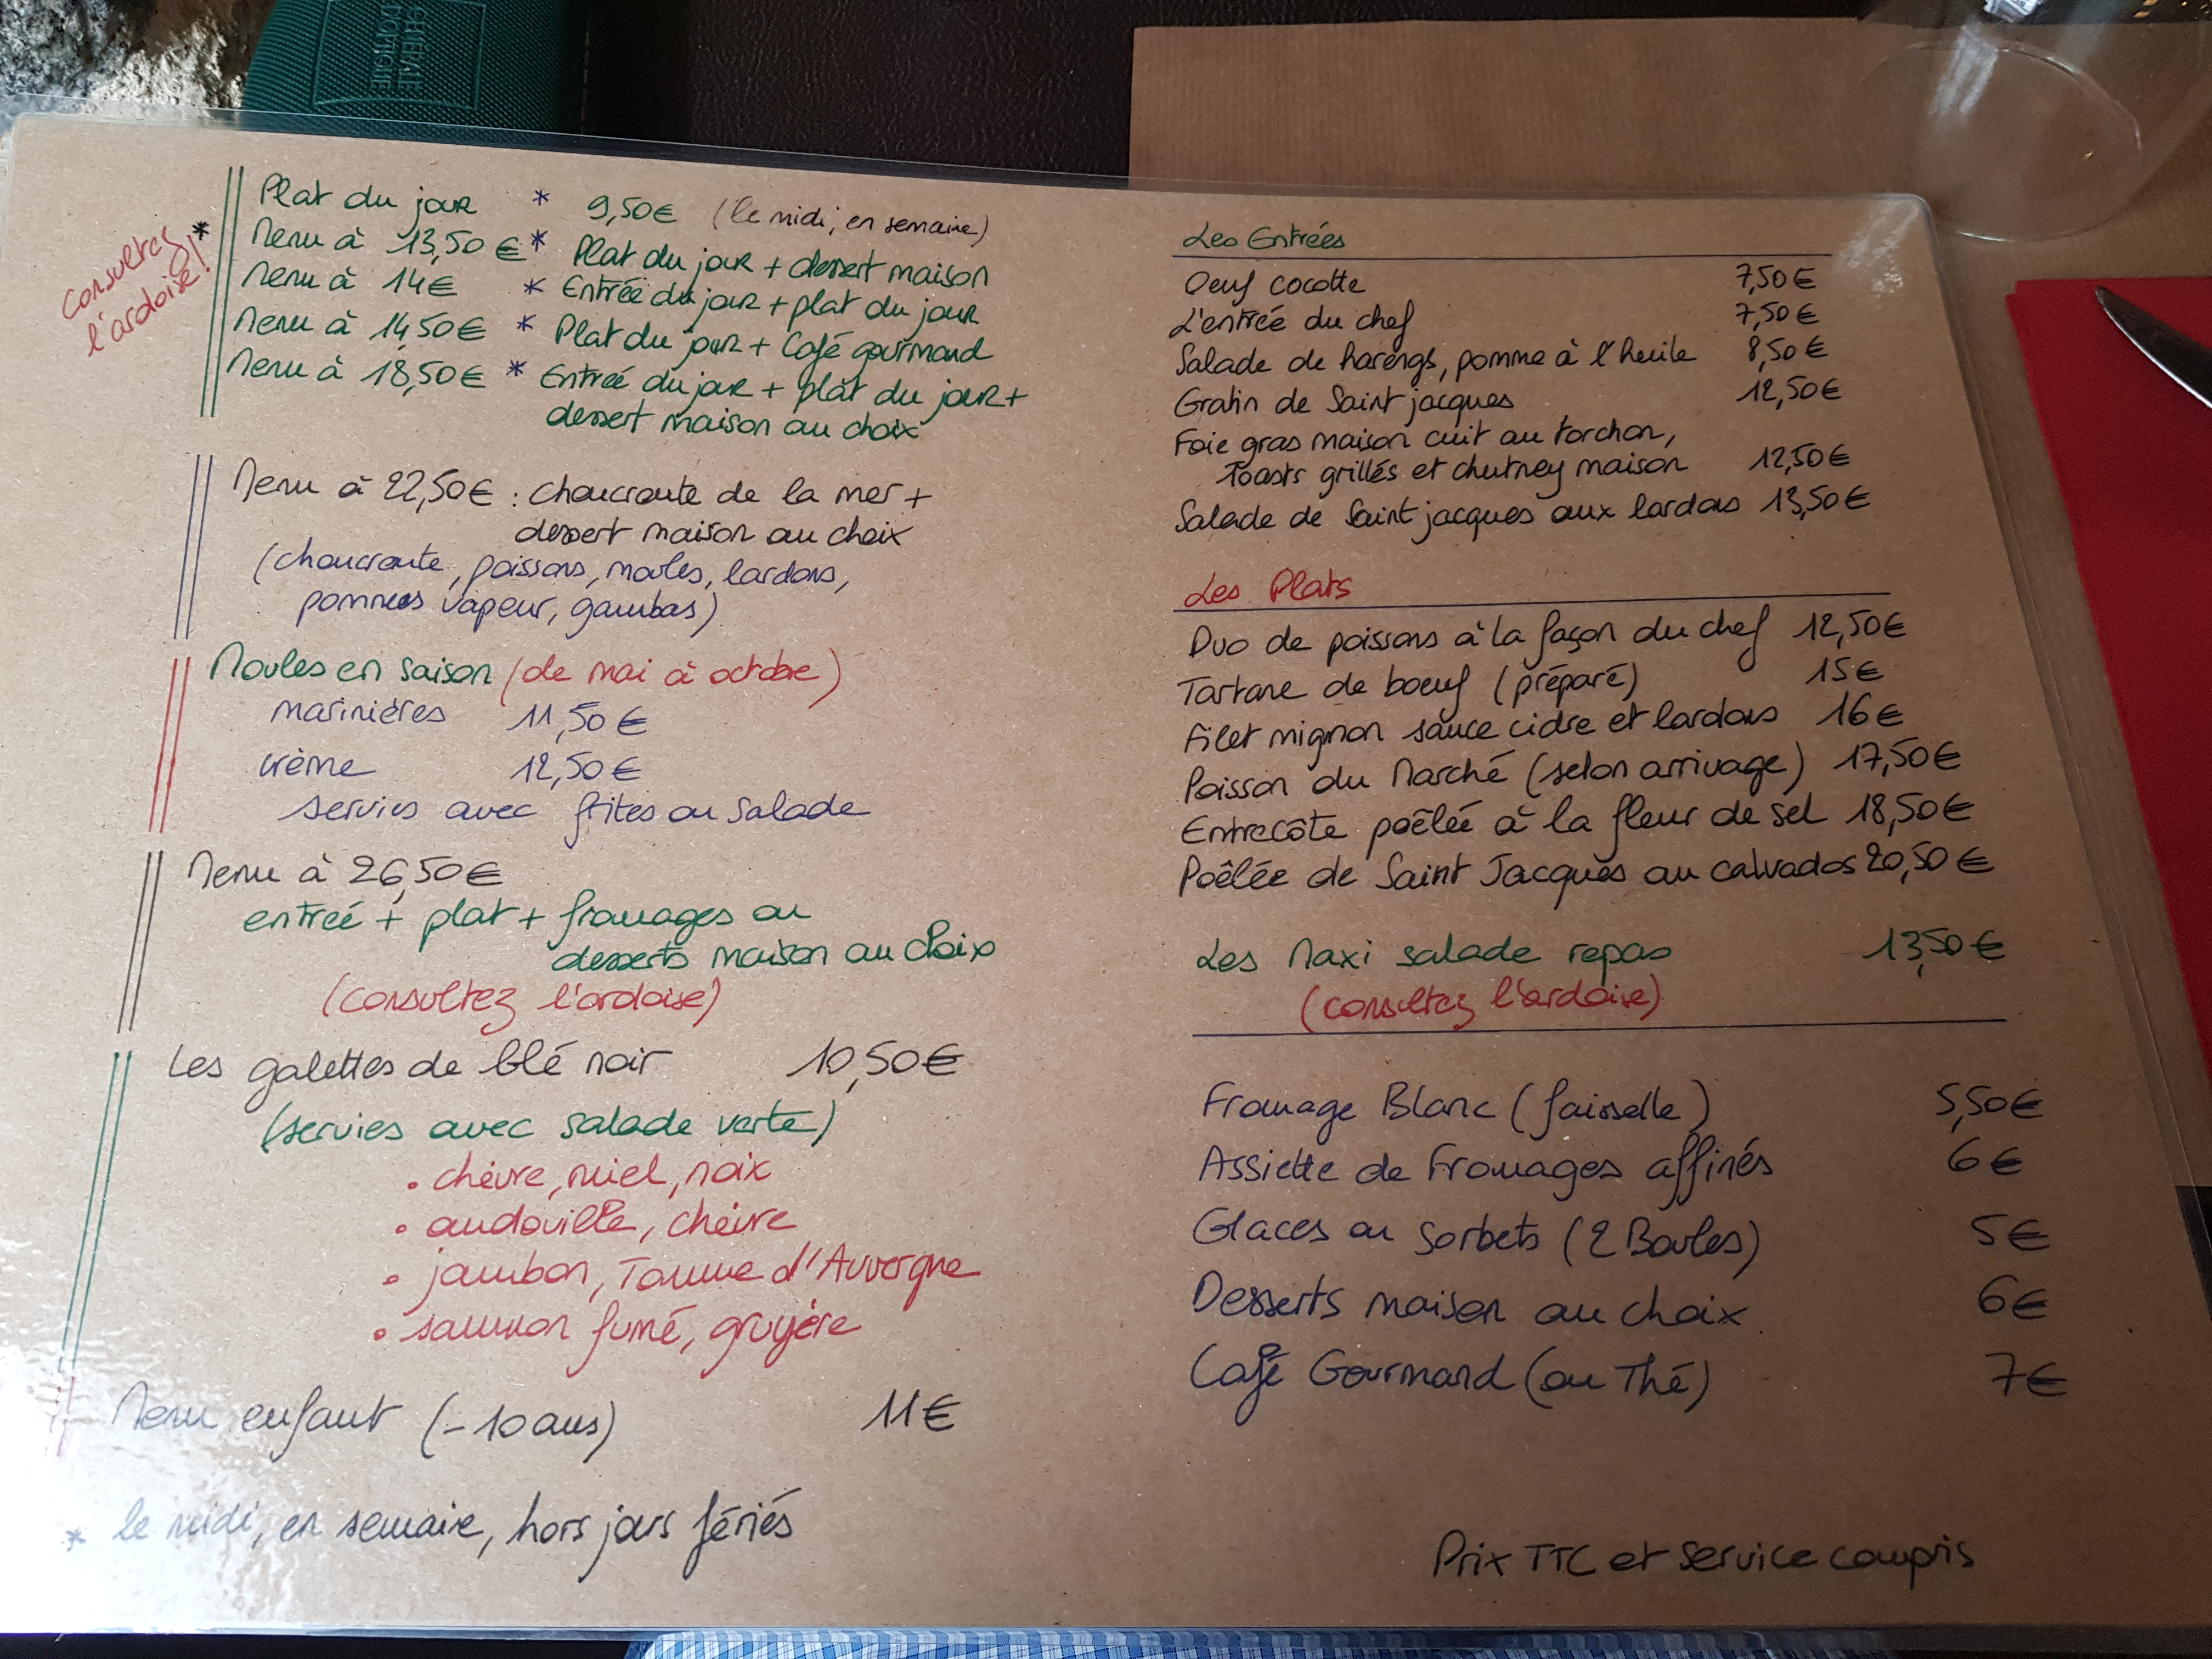 CHEVALE
DOTIQUE
consultez
l'ardoise!
*
Plat du jour * 9,50€ (le midi, en semaine)
Menu à 13,50€ * Plat du jour + dessert maison
Menu à 14€ * Entrée du jour + plat du jour
Menu à 14,50€ * Plat du jour + Café gourmand
Menu à 18,50€ * Entrée du jour + plat du jour +
dessert maison au choix
Menu à 22,50€ : choucroute de la mer +
dessert maison au choix
(choucroute, poissons, moules, lardons,
pommes vapeur, gambas)
Moules en saison (de mai à octobre)
marinières 11,50€
crème 12,50€
servies avec frites ou salade
Menu à 26,50€
entrée + plat + fromages ou
desserts maison au choix
(consultez l'ardoise)
Les galettes de blé noir 10,50€
(servies avec salade verte)
• chèvre, miel, noix
• andouille, chèvre
• jambon, Tomme d'Auvergne
• saumon fumé, gruyère
Menu enfant (-10 ans) 11€
* le midi, en semaine, hors jours fériés
Les Entrées
Oeuf cocotte 7,50€
L'entrée du chef 7,50€
Salade de harengs, pomme à l'huile 8,50€
Gratin de Saint jacques 12,50€
Foie gras maison cuit au torchon,
Toasts grillés et chutney maison 12,50€
Salade de Saint jacques aux lardons 13,50€
Les Plats
Duo de poissons à la façon du chef 12,50€
Tartare de boeuf (préparé) 15€
Filet mignon sauce cidre et lardons 16€
Poisson du Marché (selon arrivage) 17,50€
Entrecôte poêlée à la fleur de sel 18,50€
Poêlée de Saint Jacques au calvados 20,50€
Les Maxi salade repas 13,50€
(consultez l'ardoise)
Fromage Blanc (faisselle) 5,50€
Assiette de Fromages affinés 6€
Glaces ou Sorbets (2 Boules) 5€
Desserts maison au choix 6€
Café Gourmand (ou Thé) 7€
Prix TTC et service compris